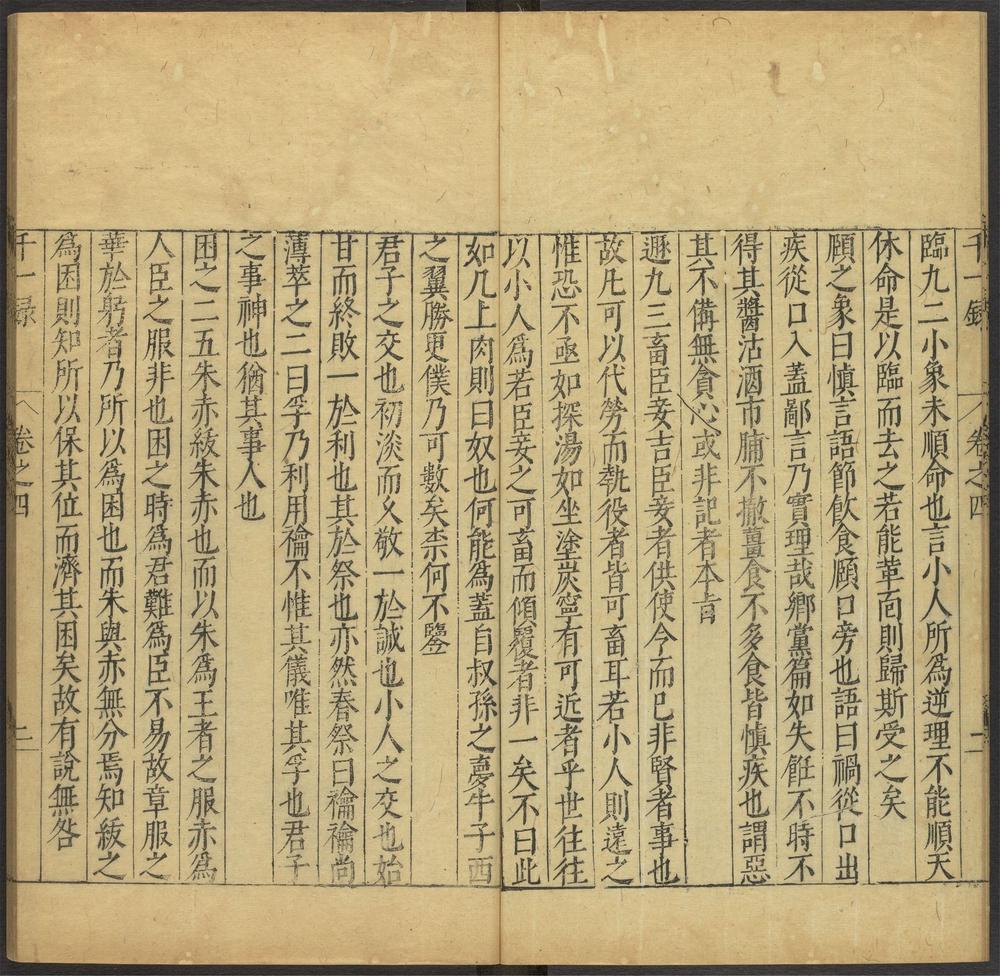 千一錄 卷之四 二
臨九二小象未順命也言小人所為逆理不能順天
休命是以臨而去之若能革面則歸斯受之矣
頤之象曰慎言語節飲食頤口旁也語曰禍從口出
疾從口入蓋鄙言乃實理哉鄉黨篇如失飪不時不
得其醬沽酒市脯不撤薑食不多食皆慎疾也謂惡
其不備無貪心或非記者本旨
遯九三畜臣妾吉臣妾者供使令而已非賢者事也
故凡可以代勞而執役者皆可畜耳若小人則遠之
惟恐不亟如探湯如坐塗炭寧有可近者乎世往往
以小人為若臣妾之可畜而傾覆者非一矣不曰此
如几上肉則曰奴也何能為蓋自叔孫之夢牛子西
之翼勝更僕乃可數矣柰何不鑒
君子之交也初淡而乆敬一於誠也小人之交也始
甘而終敗一於利也其於祭也亦然春祭曰禴禴尚
薄萃之二曰孚乃利用禴不惟其儀唯其孚也君子
之事神也猶其事人也
困之二五朱赤紱朱赤也而以朱為王者之服赤為
人臣之服非也困之時為君難為臣不易故章服之
華於躬者乃所以為困也而朱與赤無分焉知紱之
為困則知所以保其位而濟其困矣故有說無咎
千一錄 卷之四 二